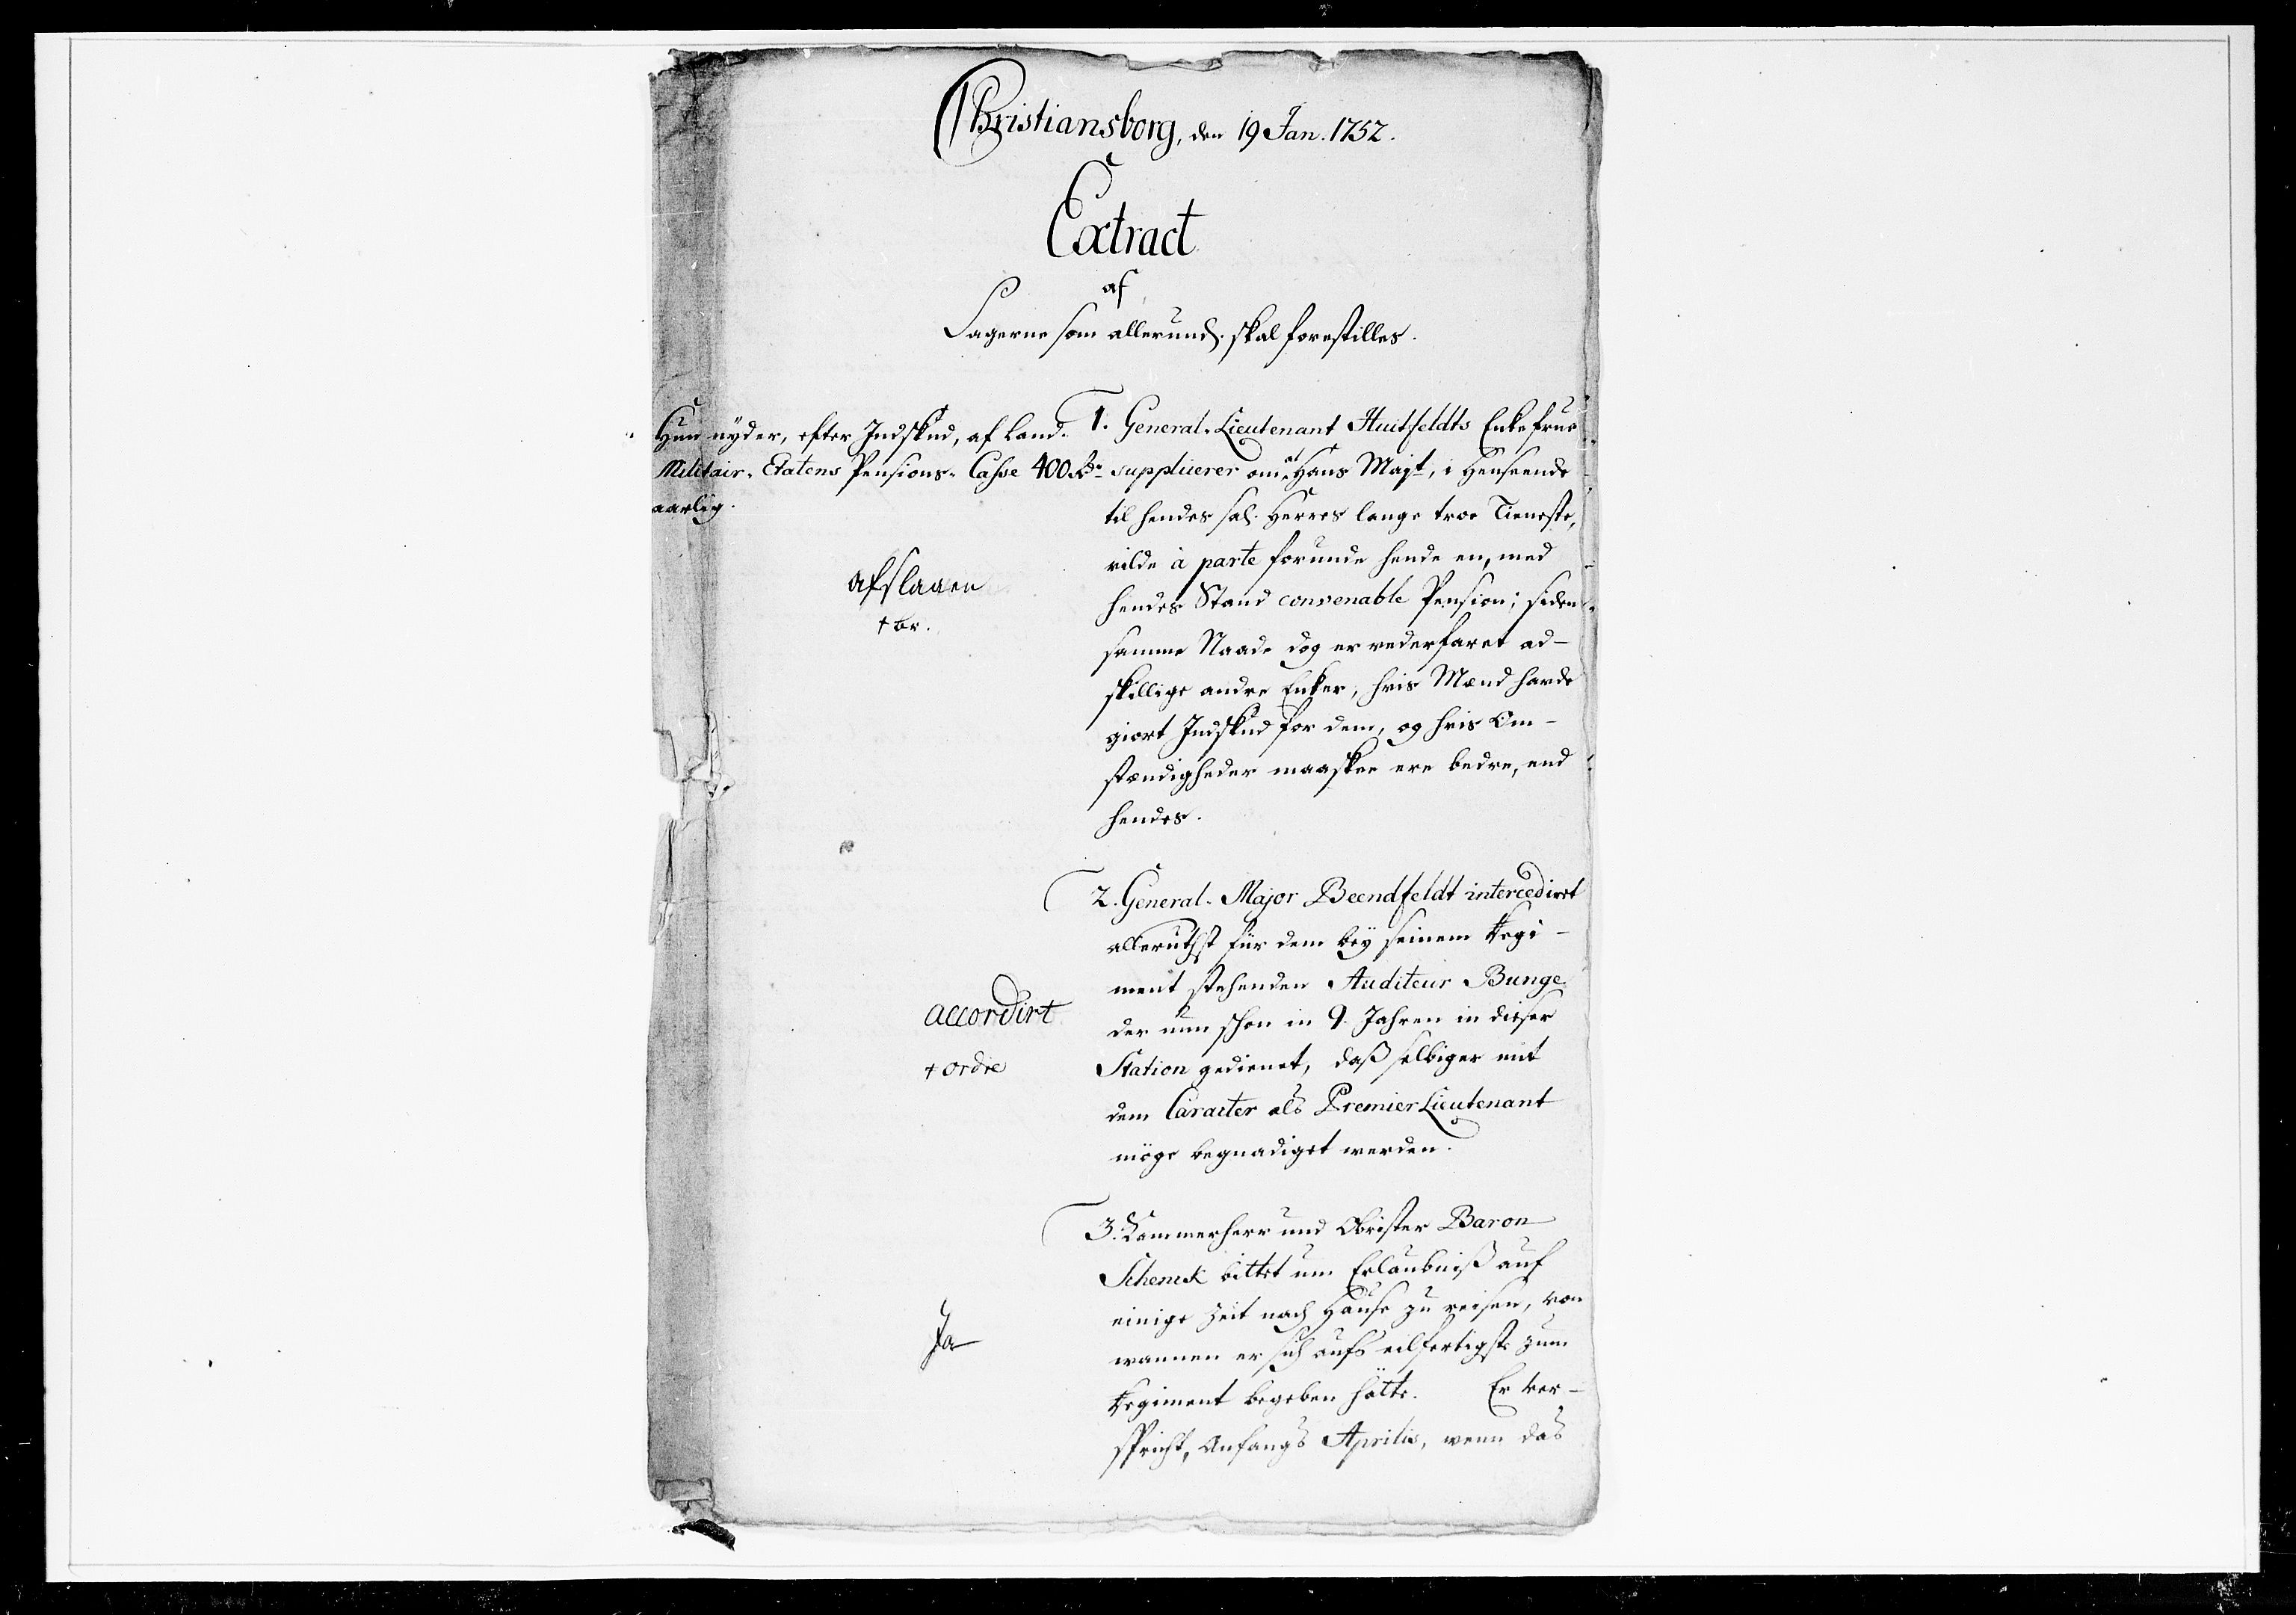 Christiansborg, den 19 Jan. 1752.
Extract
af
Sagerne som allerund. skal forestilles.
Hun nyder, efter Indskud, af Land-
Militair-Etatens Pensions-Casse 400 Rdr
aarlig.
afslaaen
+ br.
1. General-Lieutenant Huitfeldts Enkefrue
supplicerer om at Hans Majt, i Henseende
til hendes sal. Herres lange troe Tieneste,
vilde à parte forunde hende en, med
hendes Stand convenable Pension; siden
samme Naade dog er vederfaret ad-
skillige andre Enker, hvis Mænd havde
giort Indskud for dem, og hvis Om-
stændigheder maaskee ere bedre, end
hendes.
accordirt
+ ordre
2. General-Major Beendfeldt intercediret
alleruthst für dem bey seinem Regi-
ment stehenden Auditeur Bunge
der nun schon in 9. Jahren in dieser
Station gedienet, daß selbiger mit
dem Caracter als Premier Lieutenant
möge begnadiget werden.
Ja
3. Kammerherr und Obrister Baron
Schenck bittet um Erlaubniß auf
einige Zeit nach Hause zu reisen, von
wannen er sich aufs eilfertigste zum
Regiment begeben hätte. Er ver-
spricht, Anfangs Aprilis, wenn das